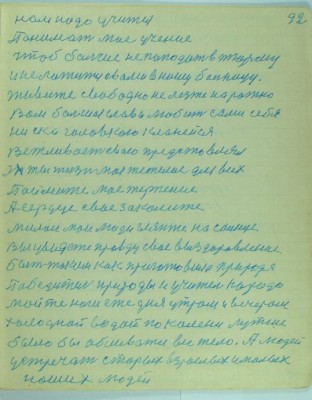 нам надо учится 92
Понимат мое учение
чтоб больше не попадат в тюрму
и не ложитца в больницу.
живите свободно не лезте на рожно
Вам больше слава любит сами себя
низко головкою кланейся
Вежливост свою представляй
Эх ты жизн моя тежолая для всех
Поймите мое терпение
А сердце свое закалите
милые мои люди гляжте на солнце
Вы увидете правду свое выздоровление
быт таким как приготовила природа
Победител природы и учител народа
мойте ноги ежедня утром и вечером
холодной водой по колени лутше
было бы обливати все тело. А людей
устречат старых взрослых и малых
наших людей